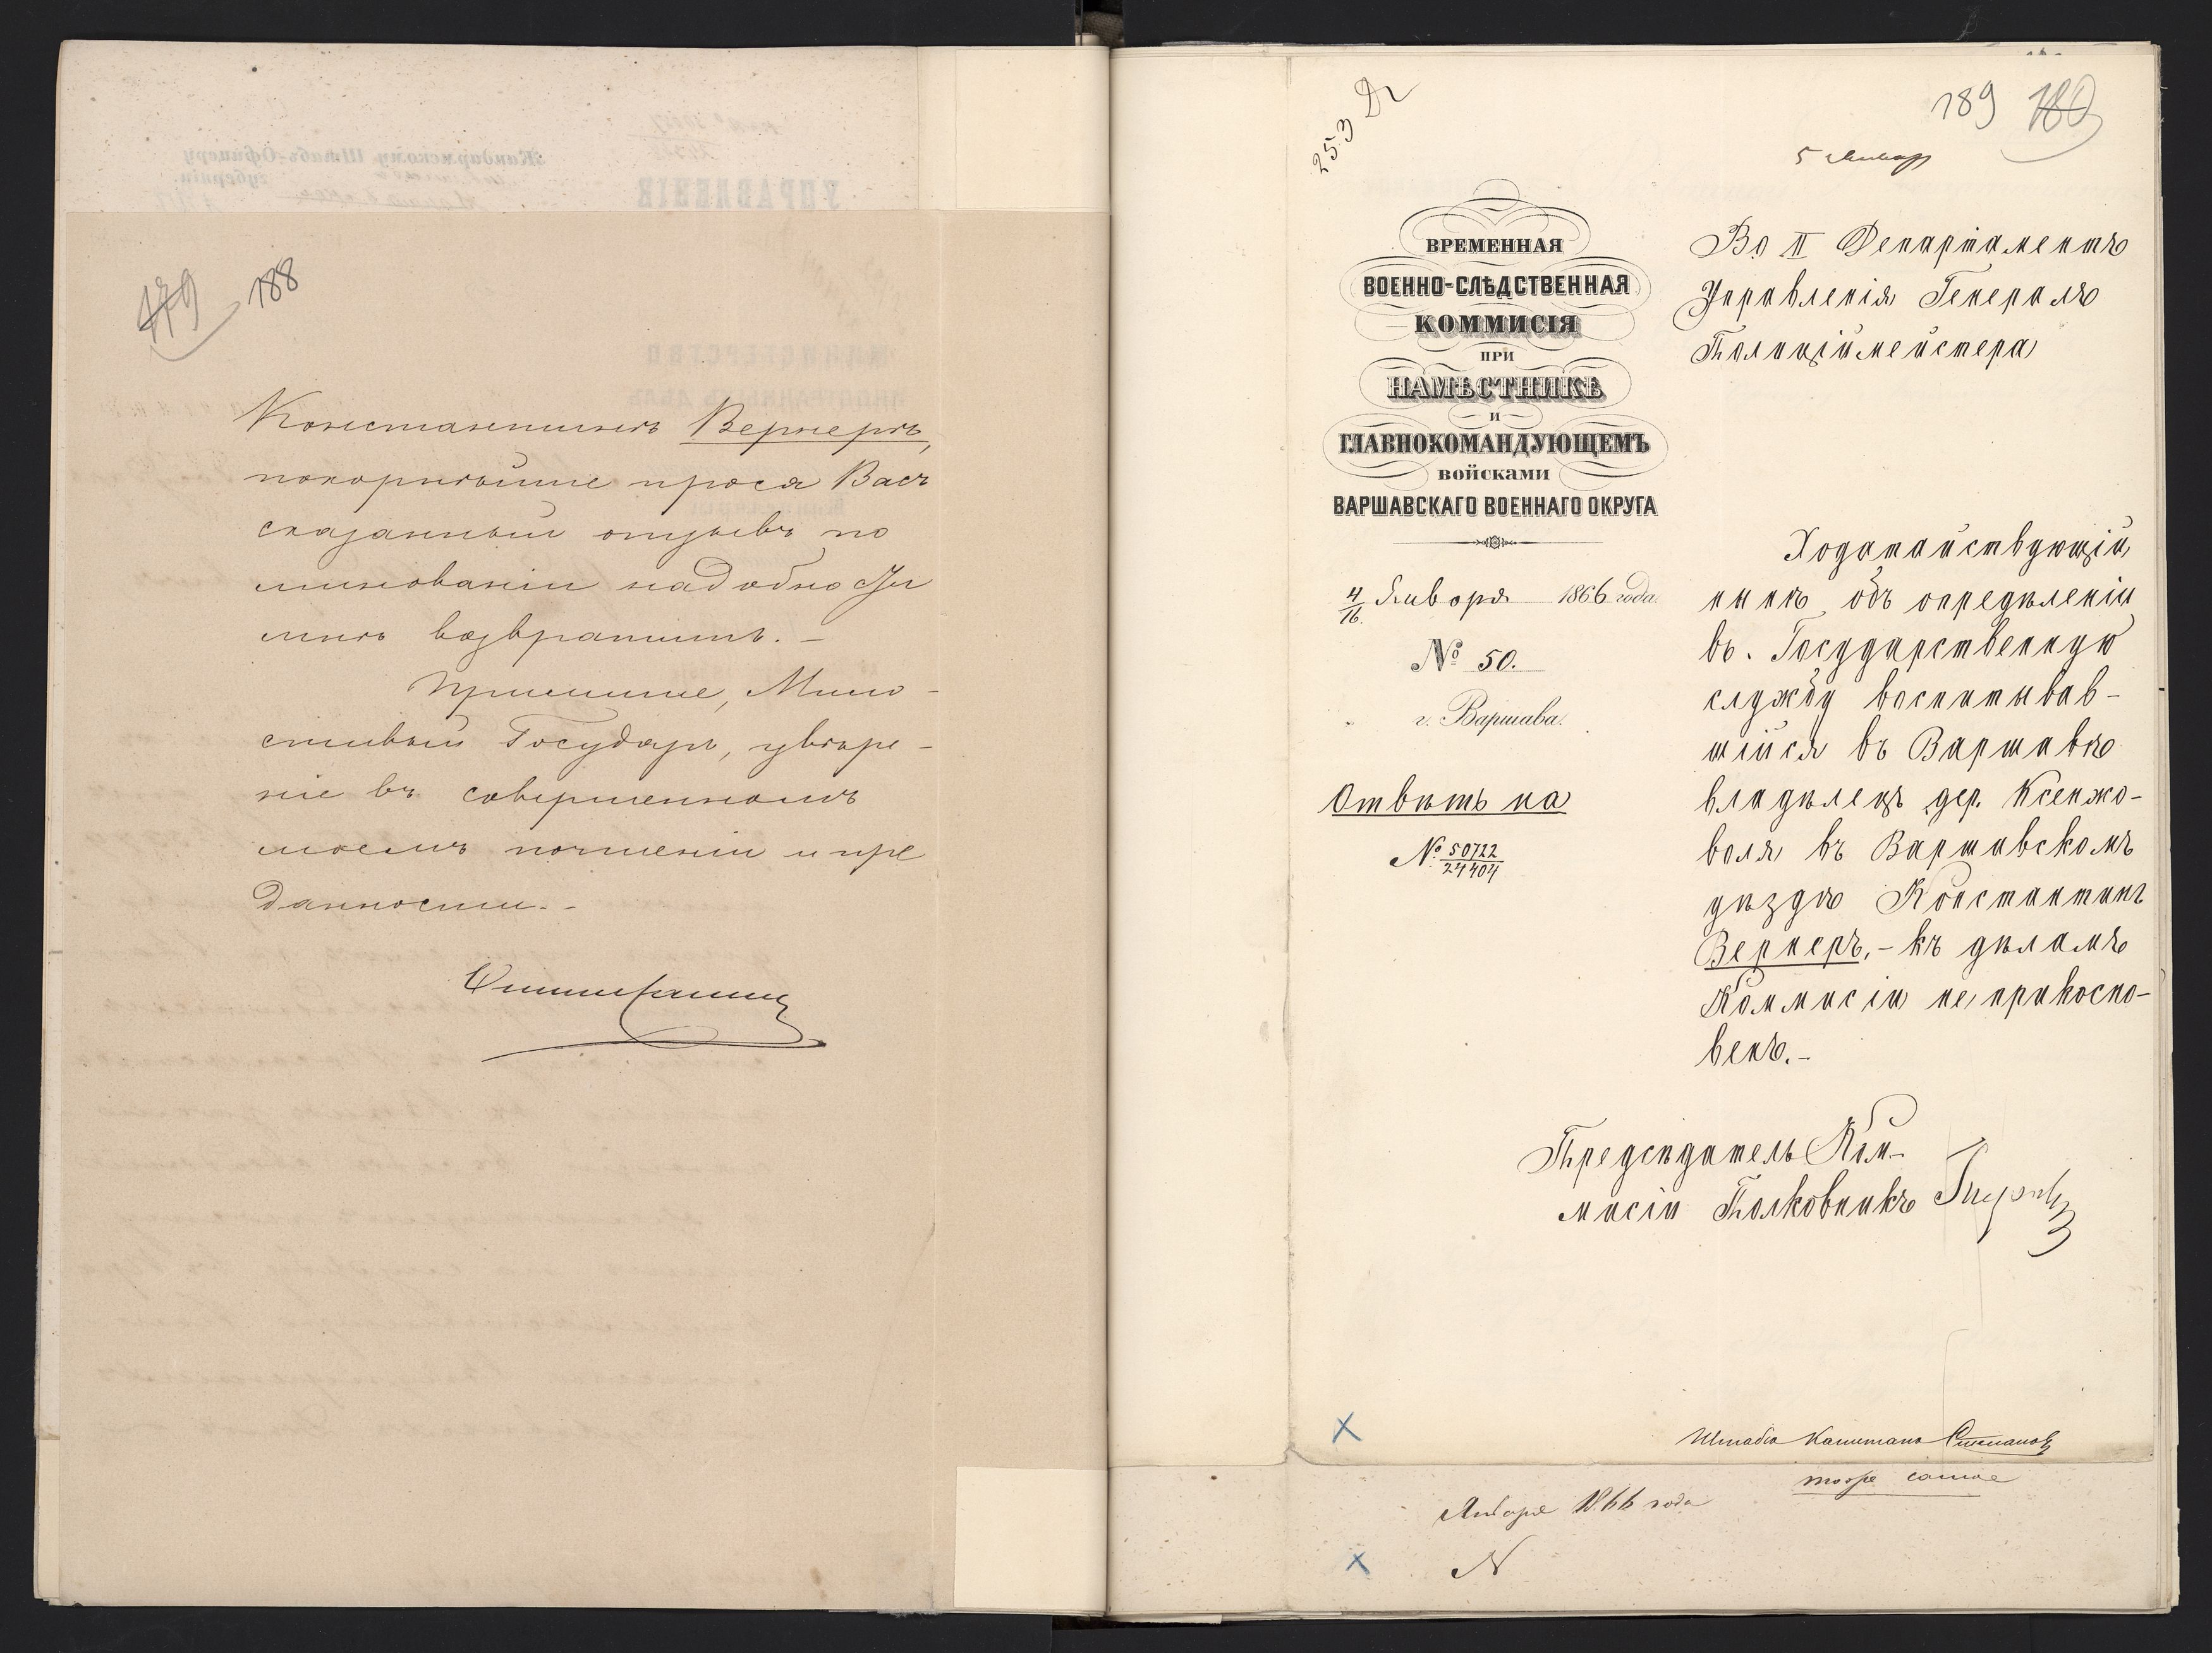 179 188
Константинъ Вернеръ,
покорнѣйше прося Васъ
сказанный отзывъ по
минованіи надобности
мнѣ возвратить. —
Примите, Мило-
стивый Государь, увѣре-
ніе въ совершенномъ
моемъ почтеніи и пре
данности. -
253
189 180
5 Января
ВРЕМЕННАЯ
ВОЕННО-СЛѢДСТВЕННАЯ
КОММИСІЯ
ПРИ
НАМѢСТНИКѢ
И
ГЛАВНОКОМАНДУЮЩЕМЪ
ВОЙСКАМИ
ВАРШАВСКАГО ВОЕННАГО ОКРУГА
4/16 Января 1866 года.
№ 50.
г. Варшава.
Отвѣтъ на
№ 50722/24404
Во II Департаментъ
Управленія Генералъ
Полиціймейстера
Ходатайствующій
нынѣ объ опредѣленіи
въ Государственную
службу воспитывав-
шійся въ Варшавѣ
владѣлецъ дер. Ксенжо-
воля въ Варшавскомъ
уѣздѣ Константинъ
Вернеръ, - къ дѣламъ
Коммисіи не прикосно-
венъ. -
Предсѣдатель Ком-
мисіи Полковникъ
Штабсъ Капитанъ Степановъ
тоже самое
Января 1866 года
N